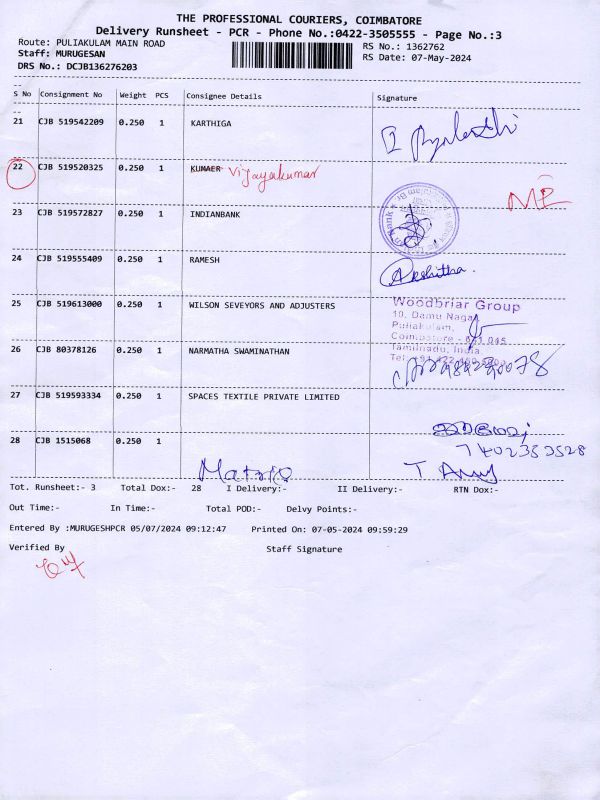 THE PROFESSIONAL COURIERS, COIMBATORE
Delivery Runsheet - PCR - Phone No.:0422-3505555 - Page No.:3
Route: PULIAKULAM MAIN ROAD
RS No.: 1362762
Staff: MURUGESAN
RS Date: 07-May-2024
DRS No.: DCJB136276203
S No Consignment No Weight PCS Consignee Details Signature
21 CJB 519542209 0.250 1 KARTHIGA
22 CJB 519520325 0.250 1 KUMAER Vijayakumar
23 CJB 519572827 0.250 1 INDIANBANK
24 CJB 519555409 0.250 1 RAMESH
Akshitha.
25 CJB 519613000 0.250 1 WILSON SEVEYORS AND ADJUSTERS
Woodbriar Group
10, Damu Nagar
Puliakulam,
Coimbatore - 641 045
Tamilnadu, India
26 CJB 80378126 0.250 1 NARMATHA SWAMINATHAN
27 CJB 519593334 0.250 1 SPACES TEXTILE PRIVATE LIMITED
7402353528
28 CJB 1515068 0.250 1
Matrix
Tot. Runsheet:- 3 Total Dox:- 28 I Delivery:- II Delivery:- RTN Dox:-
Out Time:- In Time:- Total POD:- Delvy Points:-
Entered By :MURUGESHPCR 05/07/2024 09:12:47 Printed On: 07-05-2024 09:59:29
Verified By Staff Signature